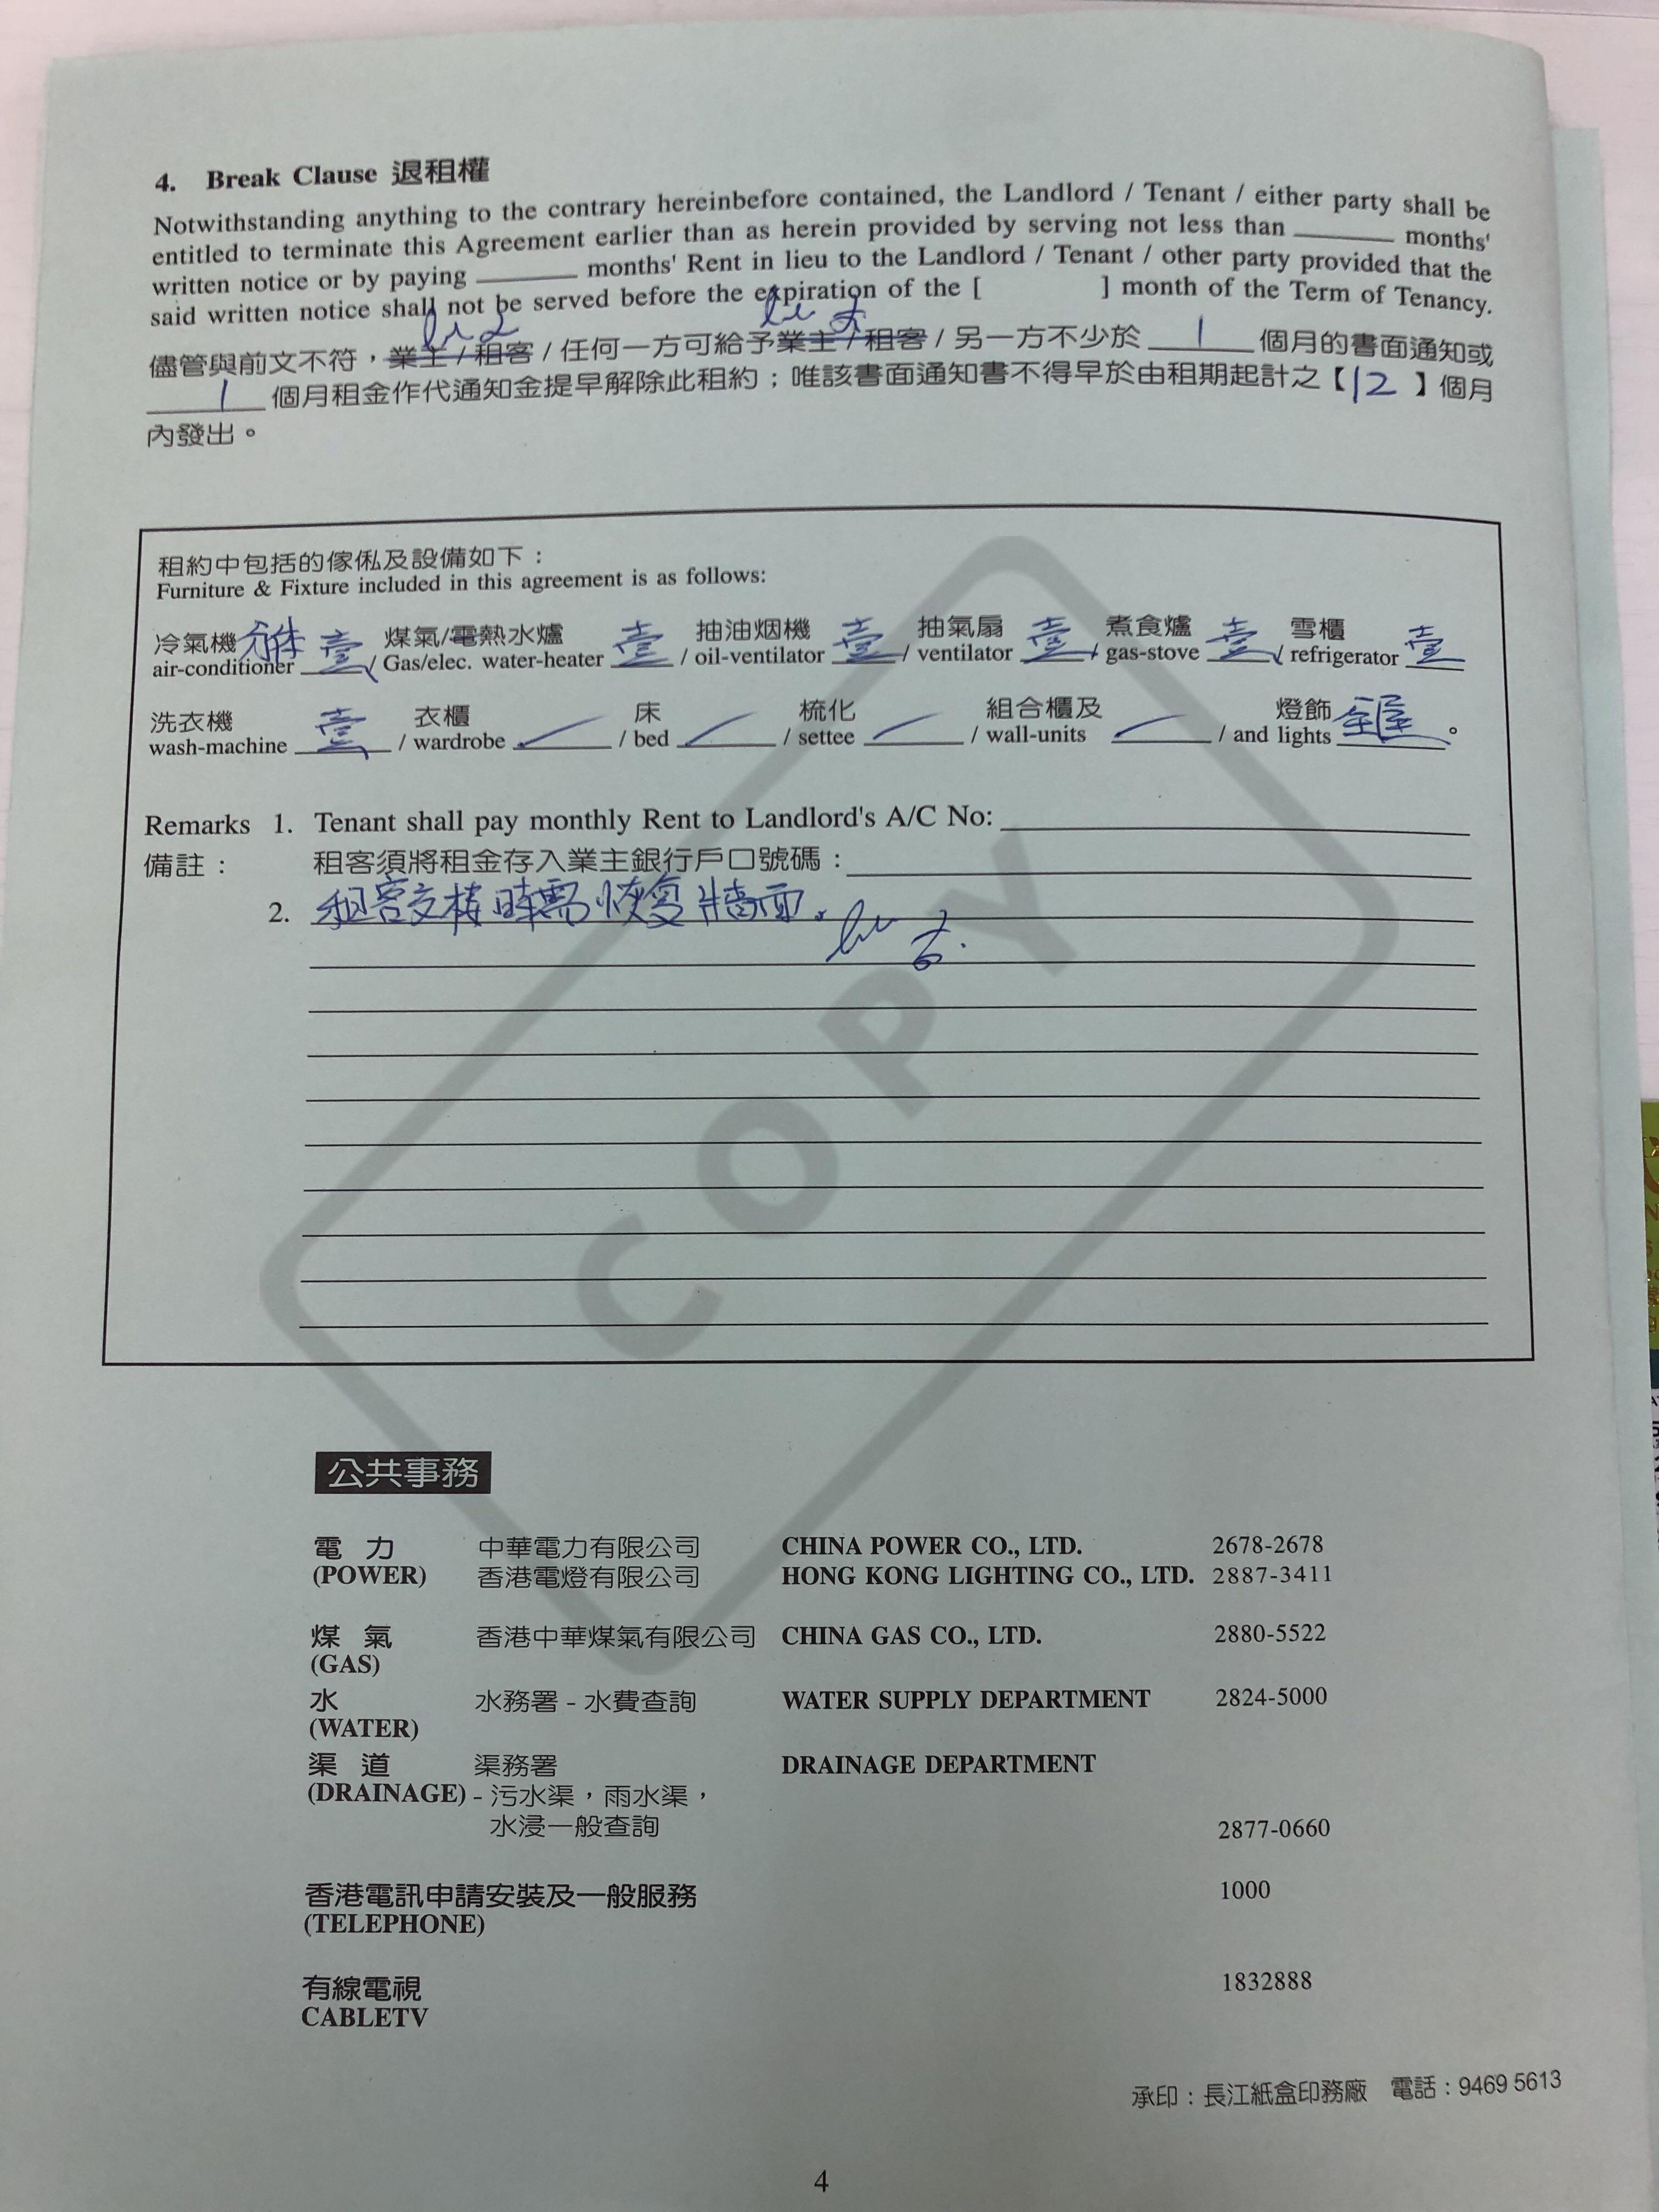 4. Break Clause 退租權
Notwithstanding anything to the contrary hereinbefore contained, the Landlord / Tenant / either party shall be
entitled to terminate this Agreement earlier than as herein provided by serving not less than ________ months'
written notice or by paying ________ months' Rent in lieu to the Landlord / Tenant / other party provided that the
said written notice shall not be served before the expiration of the [ ] month of the Term of Tenancy.
儘管與前文不符，業主 / 租客 / 任何一方可給予業主 / 租客 / 另一方不少於 1 個月的書面通知或
1 個月租金作代通知金提早解除此租約；唯該書面通知書不得早於由租期起計之【12】個月
內發出。
租約中包括的傢俬及設備如下：
Furniture & Fixture included in this agreement is as follows:
冷氣機 壹 煤氣/電熱水爐 壹 抽油烟機 壹 抽氣扇 壹 煮食爐 壹 雪櫃 壹
air-conditioner / Gas/elec. water-heater / oil-ventilator / ventilator / gas-stove / refrigerator
洗衣機 壹 衣櫃 床 梳化 組合櫃及 燈飾 全屋。
wash-machine / wardrobe / bed / settee / wall-units / and lights
Remarks 1. Tenant shall pay monthly Rent to Landlord's A/C No:
備註： 租客須將租金存入業主銀行戶口號碼：
2. 租客交樓時需恢复牆面.
COPY
公共事務
電 力 中華電力有限公司 CHINA POWER CO., LTD. 2678-2678
(POWER) 香港電燈有限公司 HONG KONG LIGHTING CO., LTD. 2887-3411
煤 氣 香港中華煤氣有限公司 CHINA GAS CO., LTD. 2880-5522
(GAS)
水 水務署 - 水費查詢 WATER SUPPLY DEPARTMENT 2824-5000
(WATER)
渠 道 渠務署 DRAINAGE DEPARTMENT
(DRAINAGE) - 污水渠，雨水渠，
水浸一般查詢 2877-0660
香港電訊申請安裝及一般服務 1000
(TELEPHONE)
有線電視 1832888
CABLETV
承印：長江紙盒印務廠 電話：9469 5613
4